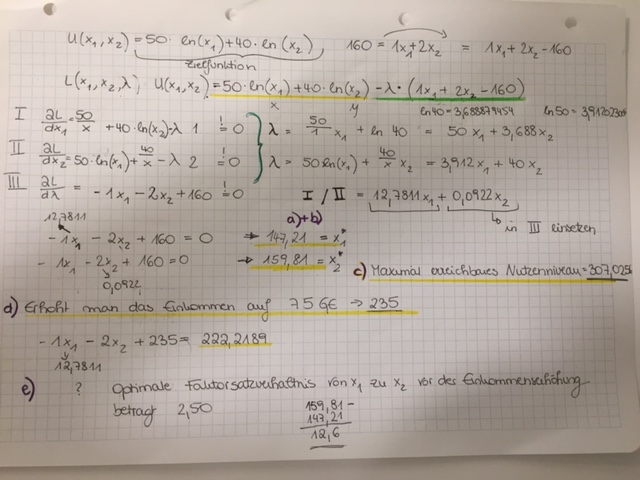 U(x₁,x₂) = 50· ln(x₁)+40· ln(x₂)   160 = 1x₁+2x₂ = 1x₁+2x₂-160
Zielfunktion
L(x₁,x₂,λ), U(x₁,x₂) = 50·ln(x₁)+40 ln(x₂) - λ· (1x₁+2x₂-160)
x y ln40=3,688879454 ln50=3,91202300
I ∂L/dx₁ = 50/x +40·ln(x₂)-λ 1 != 0   λ = 50/1 x₁ + ln 40 = 50x₁+3,688x₂
II ∂L/dx₂ = 50·ln(x₁)+ 40/x - λ 2 != 0   λ = 50ln(x₁)+ 40/x x₂ = 3,912x₁ + 40x₂
III ∂L/dλ = -1x₁-2x₂+160 != 0   I/II = 12,7811x₁ + 0,0922x₂
12,7811   a)+b)   ↳ in III einsetzen
-1x₁ - 2x₂ + 160 = 0   → 147,21 = x₁*
-1x₁ -2x₂ +160=0   → 159,81 = x₂*   c) Maximal erreichbares Nutzenniveau=307,0256
0,0922
d) Erhöht man das Einkommen auf 75 GE → 235
-1x₁ - 2x₂ +235= 222,2189
12,7811
e) ? Optimale Faktorsatzverhältnis von x₁ zu x₂ vor der Einkommenserhöhung
beträgt 2,50   159,81-
147,21
12,6